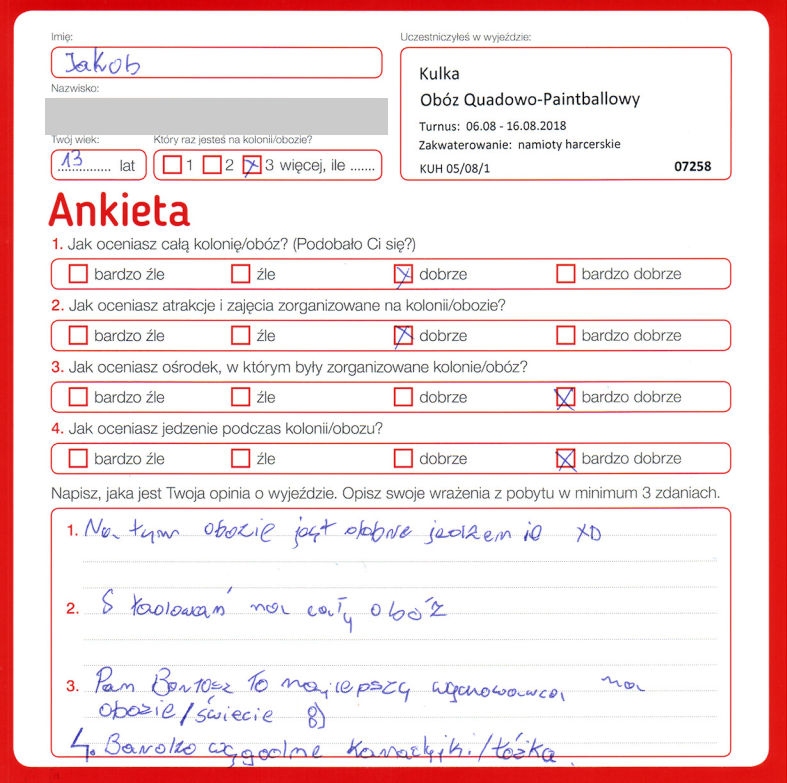 Imię:
Jakob
Nazwisko:
Twój wiek:
13 lat
Który raz jesteś na kolonii/obozie?
1 2 3 więcej, ile .......
Uczestniczyłeś w wyjeździe:
Kulka
Obóz Quadowo-Paintballowy
Turnus: 06.08 - 16.08.2018
Zakwaterowanie: namioty harcerskie
KUH 05/08/1 07258
Ankieta
1. Jak oceniasz całą kolonię/obóz? (Podobało Ci się?)
bardzo źle źle dobrze bardzo dobrze
2. Jak oceniasz atrakcje i zajęcia zorganizowane na kolonii/obozie?
bardzo źle źle dobrze bardzo dobrze
3. Jak oceniasz ośrodek, w którym były zorganizowane kolonie/obóz?
bardzo źle źle dobrze bardzo dobrze
4. Jak oceniasz jedzenie podczas kolonii/obozu?
bardzo źle źle dobrze bardzo dobrze
Napisz, jaka jest Twoja opinia o wyjeździe. Opisz swoje wrażenia z pobytu w minimum 3 zdaniach.
1. Na tym obozie jest dobre jedzenie XD
2. 8 ładowań na cały obóz
3. Pan Bartosz to najlepszy wychowawca na
obozie/świecie 8)
4. Bardzo wygodne kanadyjki/łóżka.